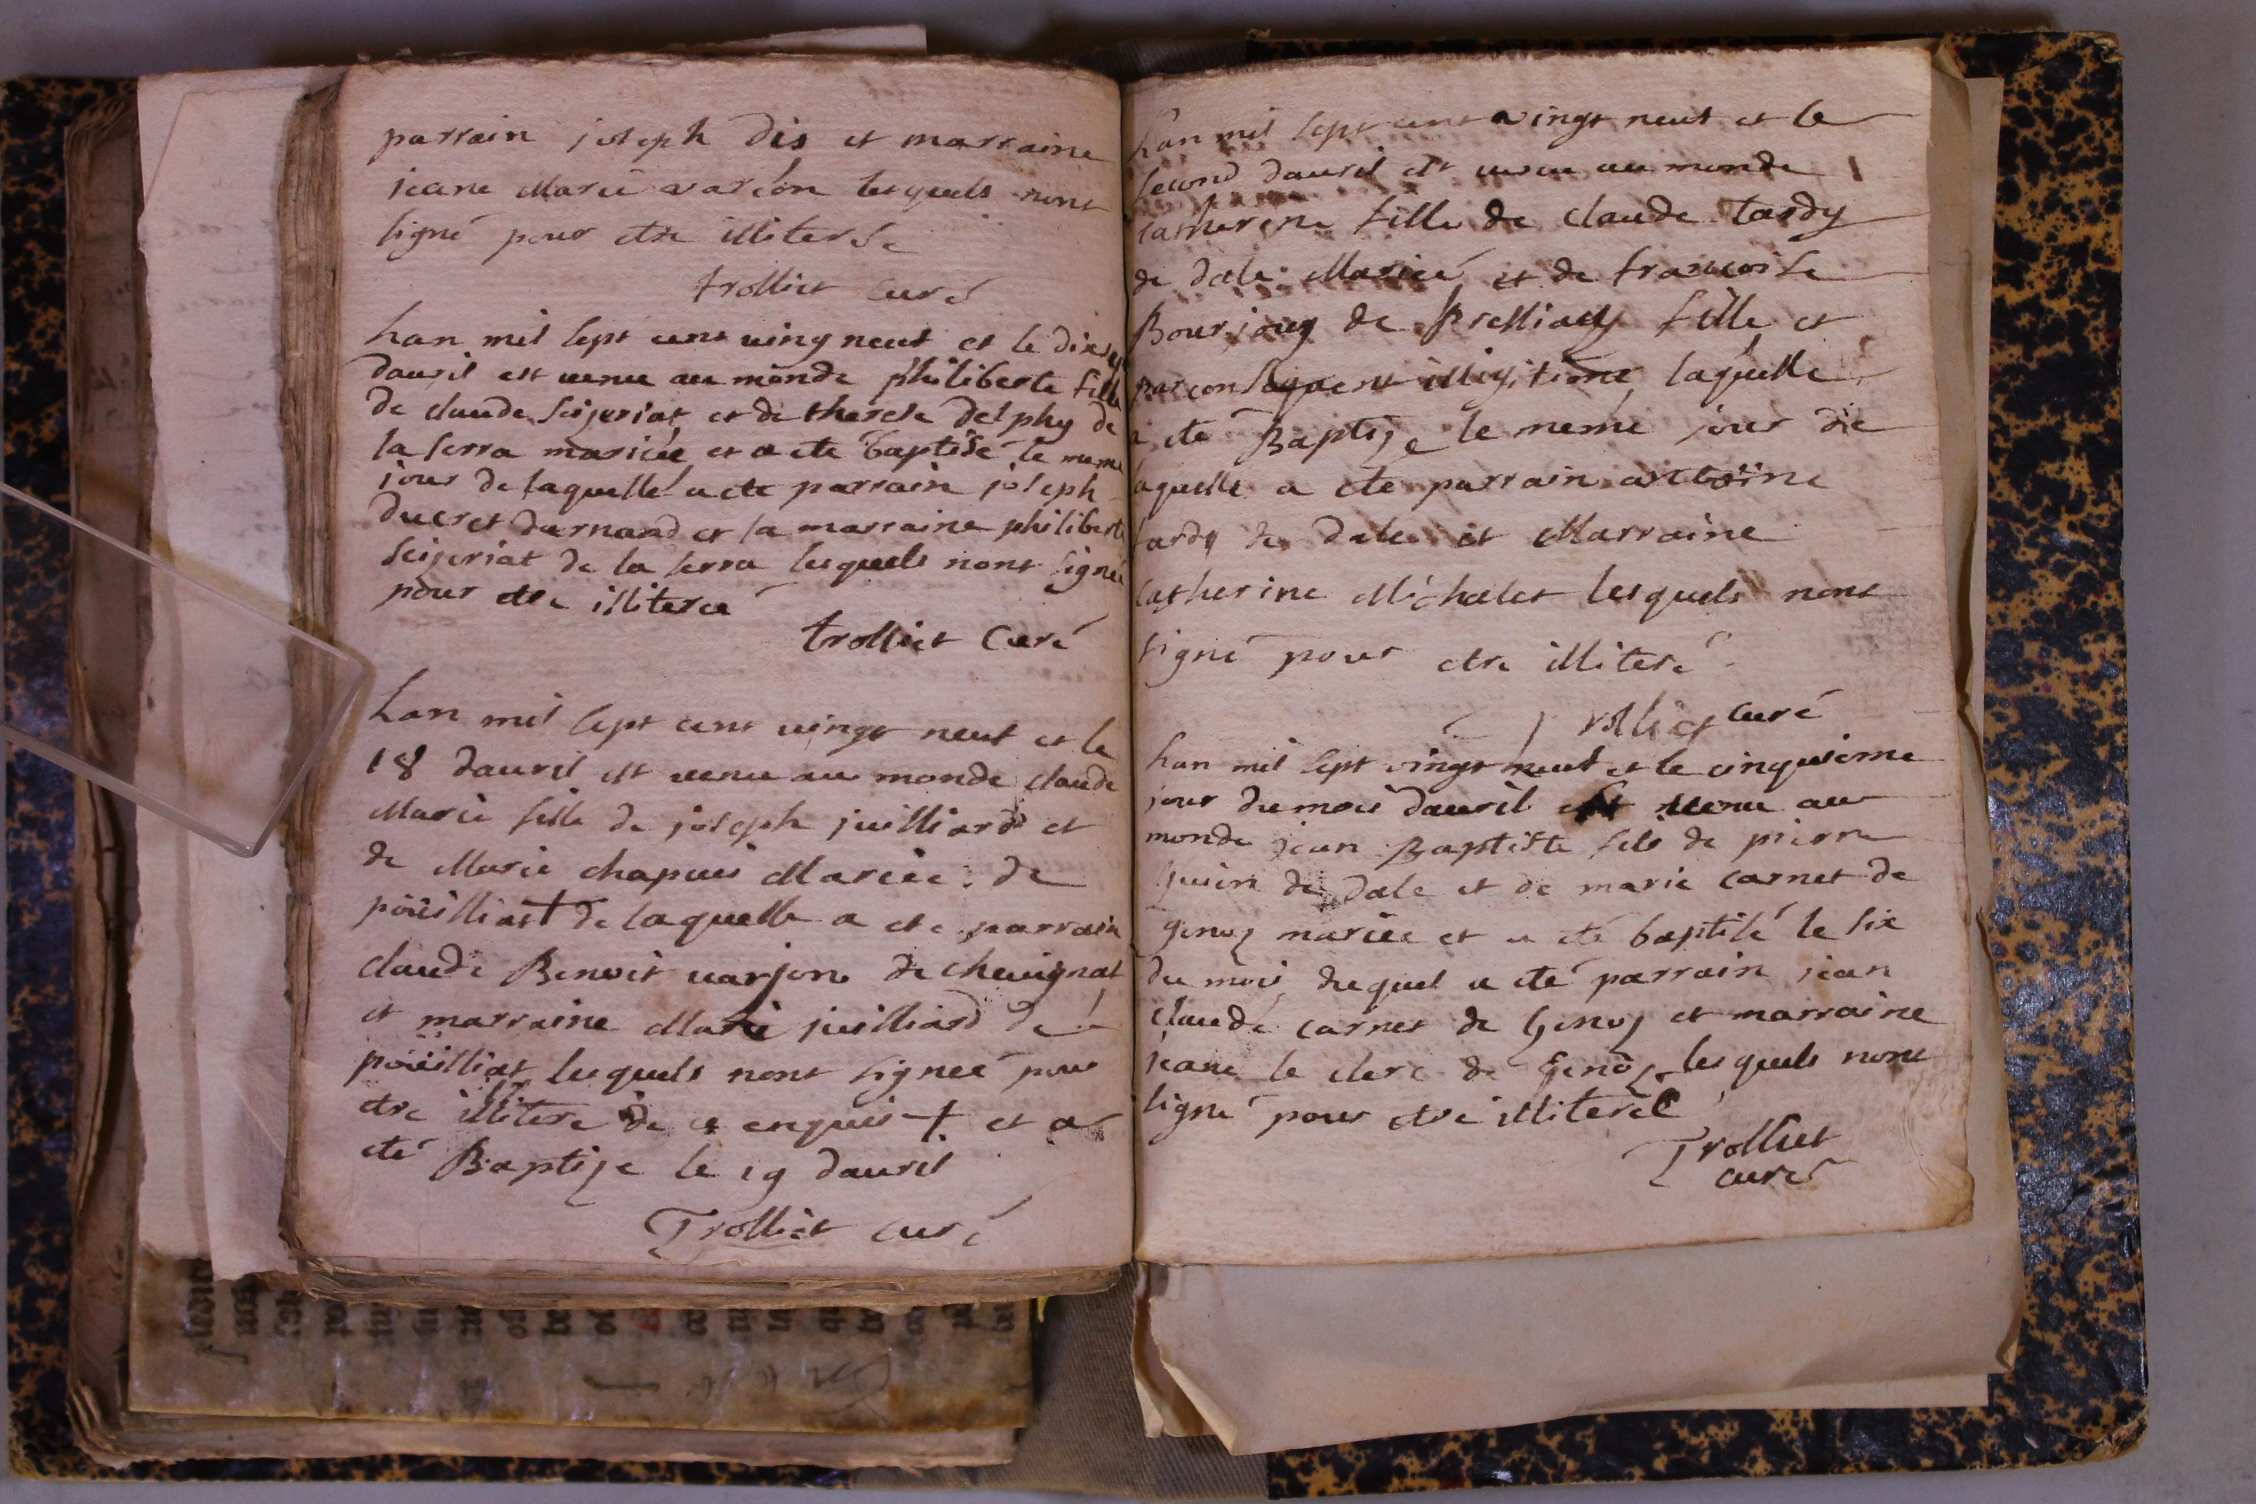 parrain joseph Dis et marraine
jeane Marie varéon lesquels nont
signé pour etre illiterse
trolliet curé
Lan mil sept cent ving neuf et le dixsep
dauril est uenu au monde philiberte fille
de claude seijeriat et de therese Delphy de
la serra mariée et a eté baptisé le meme
jour de laquelle a ete parrain joseph
Ducret darnand et la marraine philiberte
seijeriat de la serra lesquels nont signée
pour etre illiteré
trolliet Curé
Lan mil sept cent uingt neuf et le
18 dauril est uenu au monde claude
Marie fille de joseph juilliard et
de Marie chapuis Mariée de
poüilliat de laquelle a ete parrain
claude Benoit uarjon de cheuignat
et marraine Marie juilliard de
poüilliat lesquels nont signeé pour
etre illitere de ce enquis + et a
eté Baptize le 19 dauril
Trolliet curé
Lan mil sept cent vingt neuf et le
second dauril est uenu au monde
catherine fille de claude tardy
de dale Mariée et de francoise
Bourjouy de Breilliay fille et
par consequent illigitime laquelle
a eté Baptize le meme jour die
laquelle a ete parrain antoine
tardy de dale et Marraine
catherine Michalet lesquels nont
signé pour etre illiteré
Trolliet curé
Lan mil sept vingt neuf et le cinquieme
jour du mois dauril est uenu au
monde jean Baptiste fils de pierre
de dale et de marie carnet de
genoz mariée et a eté baptisé le six
du mois duquel a eté parrain jean
claude carnet de genoz et marraine
jeane le clerc de genoz lesquels nont
signé pour etre illiteré
Trolliet
curé